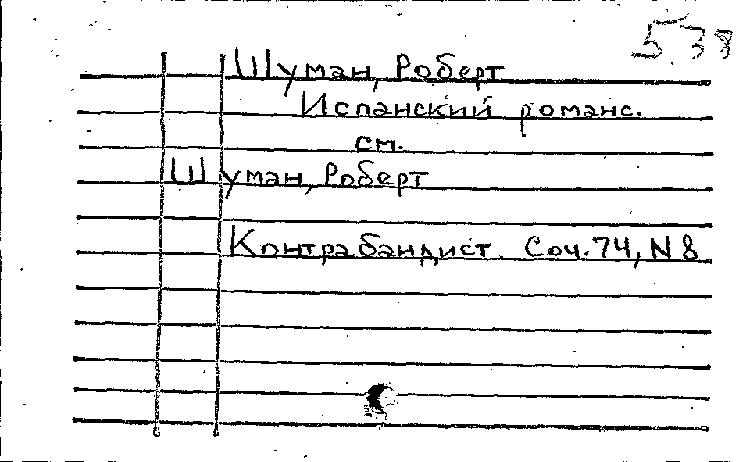 538
Шуман, Роберт
Испанский романс.
см.
Шуман, Роберт
Контрабандист. Соч. 74, N 8